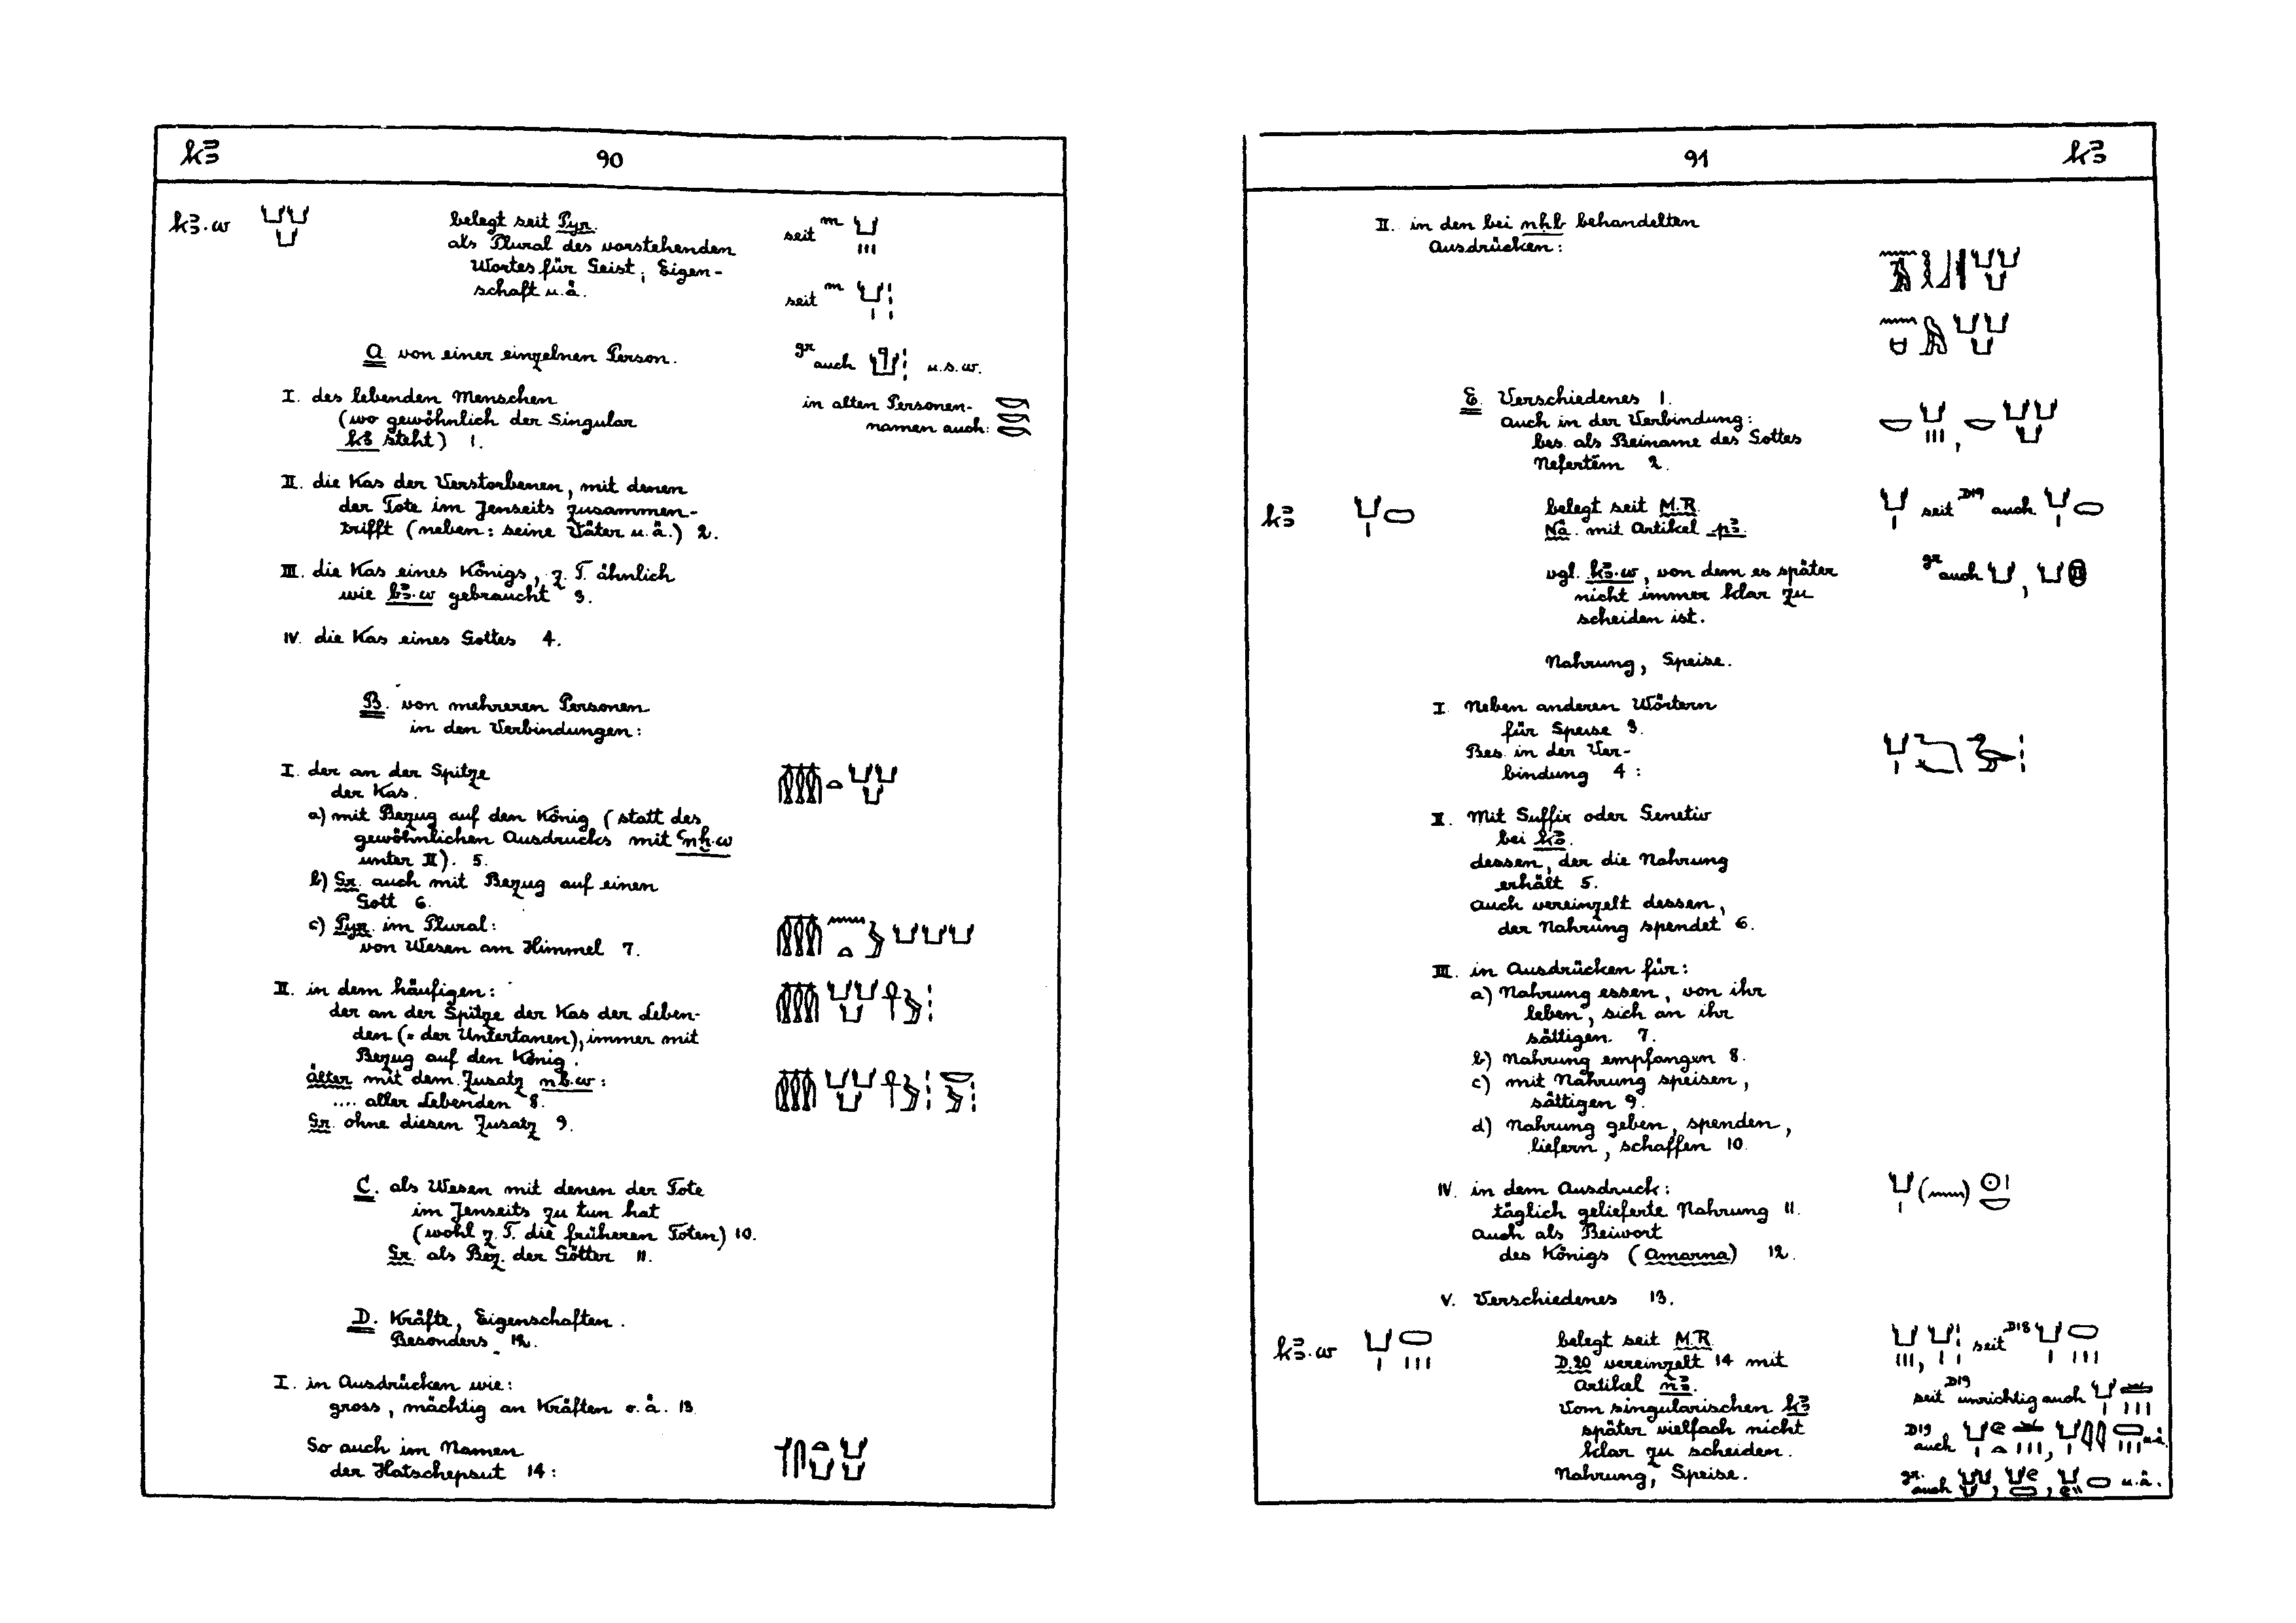 kꜣ
90
kꜣ.w 𓂓𓂓𓂓
belegt seit Pyr.
als Plural des vorstehenden
Wortes für Geist, Eigen-
schaft u.ä.
seit m 𓂓𓏥
seit m 𓂓
A. von einer einzelnen Person.
gr auch u.s.w.
I. des lebenden Menschen
(wo gewöhnlich der Singular
kꜣ steht) 1.
in alten Personen-
namen auch: 𓎡𓎡𓎡
II. die Kas der Verstorbenen, mit denen
der Tote im Jenseits zusammen-
trifft (neben: seine Väter u.ä.) 2.
III. die Kas eines Königs, z. T. ähnlich
wie bꜣ.w gebraucht 3.
IV. die Kas eines Gottes 4.
B. von mehreren Personen
in den Verbindungen:
I. der an der Spitze
der Kas.
𓏃𓏏𓂓𓂓𓂓
a) mit Bezug auf den König (statt des
gewöhnlichen Ausdrucks mit ꜥnḫ.w
unter II). 5.
b) Gr. auch mit Bezug auf einen
Gott 6.
c) Pyr. im Plural:
von Wesen am Himmel 7.
II. in dem häufigen:
der an der Spitze der Kas der Leben-
den (= der Untertanen), immer mit
Bezug auf den König.
älter mit dem Zusatz nb.w:
.... aller Lebenden 8.
Gr. ohne diesen Zusatz 9.
C. als Wesen mit denen der Tote
im Jenseits zu tun hat
(wohl z. T. die früheren Toten) 10.
Gr. als Bez. der Götter 11.
D. Kräfte, Eigenschaften.
Besonders 12.
I. in Ausdrücken wie:
gross, mächtig an Kräften o.ä. 13.
So auch im Namen
der Hatschepsut 14:
𓄊𓋴𓏏𓂓𓂓𓂓
91
kꜣ
II. in den bei nḥb behandelten
Ausdrücken:
E. Verschiedenes 1.
auch in der Verbindung:
bes. als Beiname des Gottes
Nefertêm 2.
𓎟𓂓𓏥, 𓎟𓂓𓂓𓂓
kꜣ
belegt seit M.R.
Nä. mit Artikel pꜣ.
𓂓𓏤 seit D19 auch
vgl. kꜣ.w, von dem es später
nicht immer klar zu
scheiden ist.
gr auch 𓂓,
Nahrung, Speise.
I. Neben anderen Wörtern
für Speise 3.
Bes. in der Ver-
bindung 4:
II. Mit Suffix oder Genetiv
bei kꜣ.
dessen, der die Nahrung
erhält 5.
auch vereinzelt dessen,
der Nahrung spendet 6.
III. in Ausdrücken für:
a) Nahrung essen, von ihr
leben, sich an ihr
sättigen. 7.
b) Nahrung empfangen 8.
c) mit Nahrung speisen,
sättigen 9.
d) Nahrung geben, spenden,
liefern, schaffen 10.
IV. in dem Ausdruck:
täglich gelieferte Nahrung 11.
𓂓𓏤(𓈖)𓇳𓏤𓎟
Auch als Beiwort
des Königs (Amarna) 12.
V. Verschiedenes 13.
kꜣ.w
belegt seit M.R.
D.20 vereinzelt 14 mit
Artikel nꜣ.
seit D18
Vom singularischen kꜣ
später vielfach nicht
klar zu scheiden.
Nahrung, Speise.
D19
seit unrichtig auch
D19
auch u.ä.
gr.
auch u.ä.